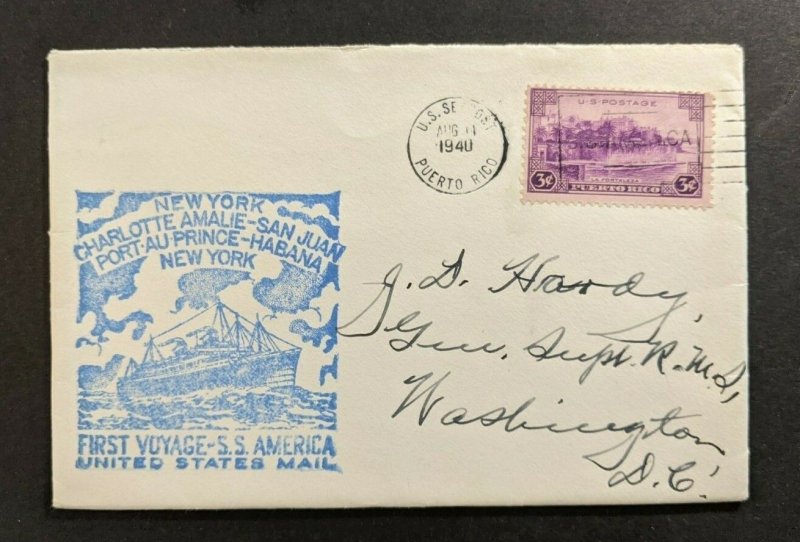 NEW YORK
CHARLOTTE AMALIE-SAN JUAN
PORT-AU-PRINCE-HABANA
NEW YORK
FIRST VOYAGE-S.S. AMERICA
UNITED STATES MAIL
U.S. SE POST
AUG 11
1940
PUERTO RICO
U.S. POSTAGE
3¢ PUERTO RICO 3¢
J. D. Hardy,
Gen. Supt. R.M.S,
Washington
D.C.